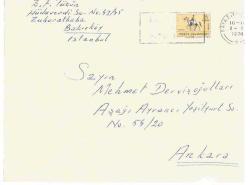 Hüdaverdi So. No. 43/35
Zuhuratbaba
Bakırköy
İstanbul
Sayın
Mehmet Dervişoğulları
Aşağı Ayrancı Yeşilyurt So.
No. 58/20
Ankara